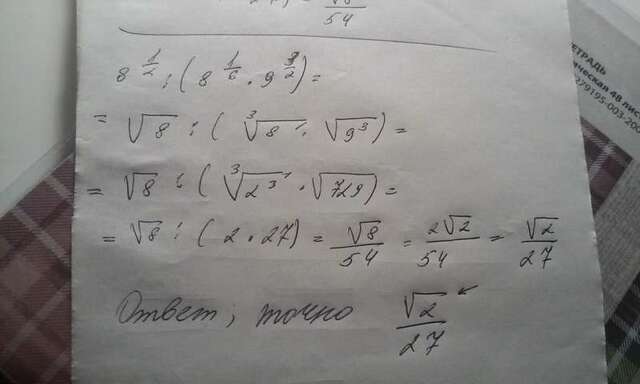 √8
54
8^(1/2) : (8^(1/6) · 9^(3/2)) =
= √8 : (∛8¹ · √9³) =
= √8 : (∛2³ · √729) =
= √8 : (2 · 27) = √8/54 = 2√2/54 = √2/27
Ответ; точно √2/27
ТЕТРАДЬ
ическая 48 лист
279195-003-200